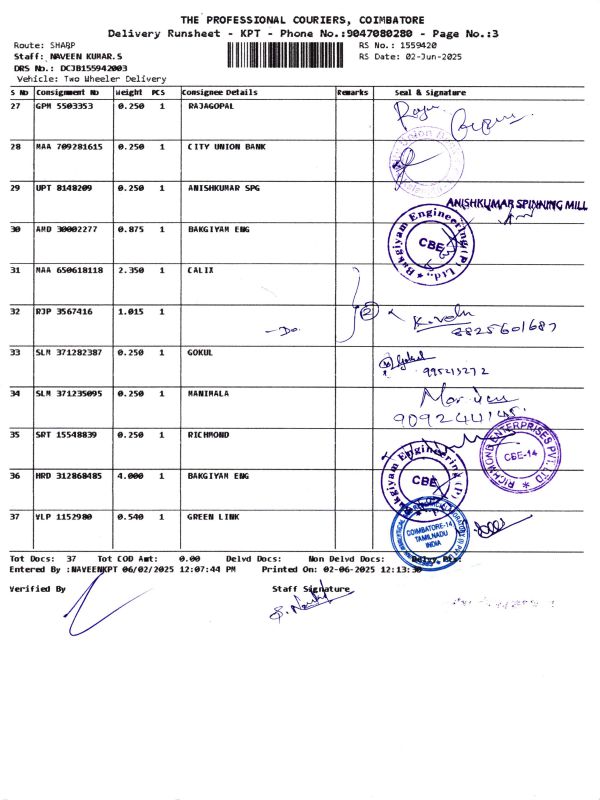 THE PROFESSIONAL COURIERS, COIMBATORE
Delivery Runsheet - KPT - Phone No.:9047080280 - Page No.:3
Route: SHARP
RS No.: 1559420
Staff: NAVEEN KUMAR.S
RS Date: 02-Jun-2025
DRS No.: DCJB155942003
Vehicle: Two Wheeler Delivery
S No Consignment No Weight PCS Consignee Details Remarks Seal & Signature
27 GPM 5503353 0.250 1 RAJAGOPAL
28 MAA 709281615 0.250 1 CITY UNION BANK
29 UPT 8148209 0.250 1 ANISHKUMAR SPG
ANISHKUMAR SPINNING MILL
30 AMD 30002277 0.875 1 BAKGIYAM ENG
Bakgiyam Engineering (P) Ltd.,
CBE
31 MAA 650618118 2.350 1 CALIX
32 RJP 3567416 1.015 1
-Do
2
8825601687
33 SLM 371282387 0.250 1 GOKUL
Gokul
34 SLM 371235095 0.250 1 MANIMALA
35 SRT 15548839 0.250 1 RICHMOND
RICHMOND ENTERPRISES PVT. LTD
CBE-14
36 HRD 312868485 4.000 1 BAKGIYAM ENG
Bakgiyam Engineering (P)
CBE
37 VLP 1152980 0.540 1 GREEN LINK
COIMBATORE-14
TAMILNADU
INDIA
Tot Docs: 37 Tot COD Amt: 0.00 Delvd Docs: Non Delvd Docs:
Entered By :NAVEENKPT 06/02/2025 12:07:44 PM Printed On: 02-06-2025 12:13:30
Verified By Staff Signature